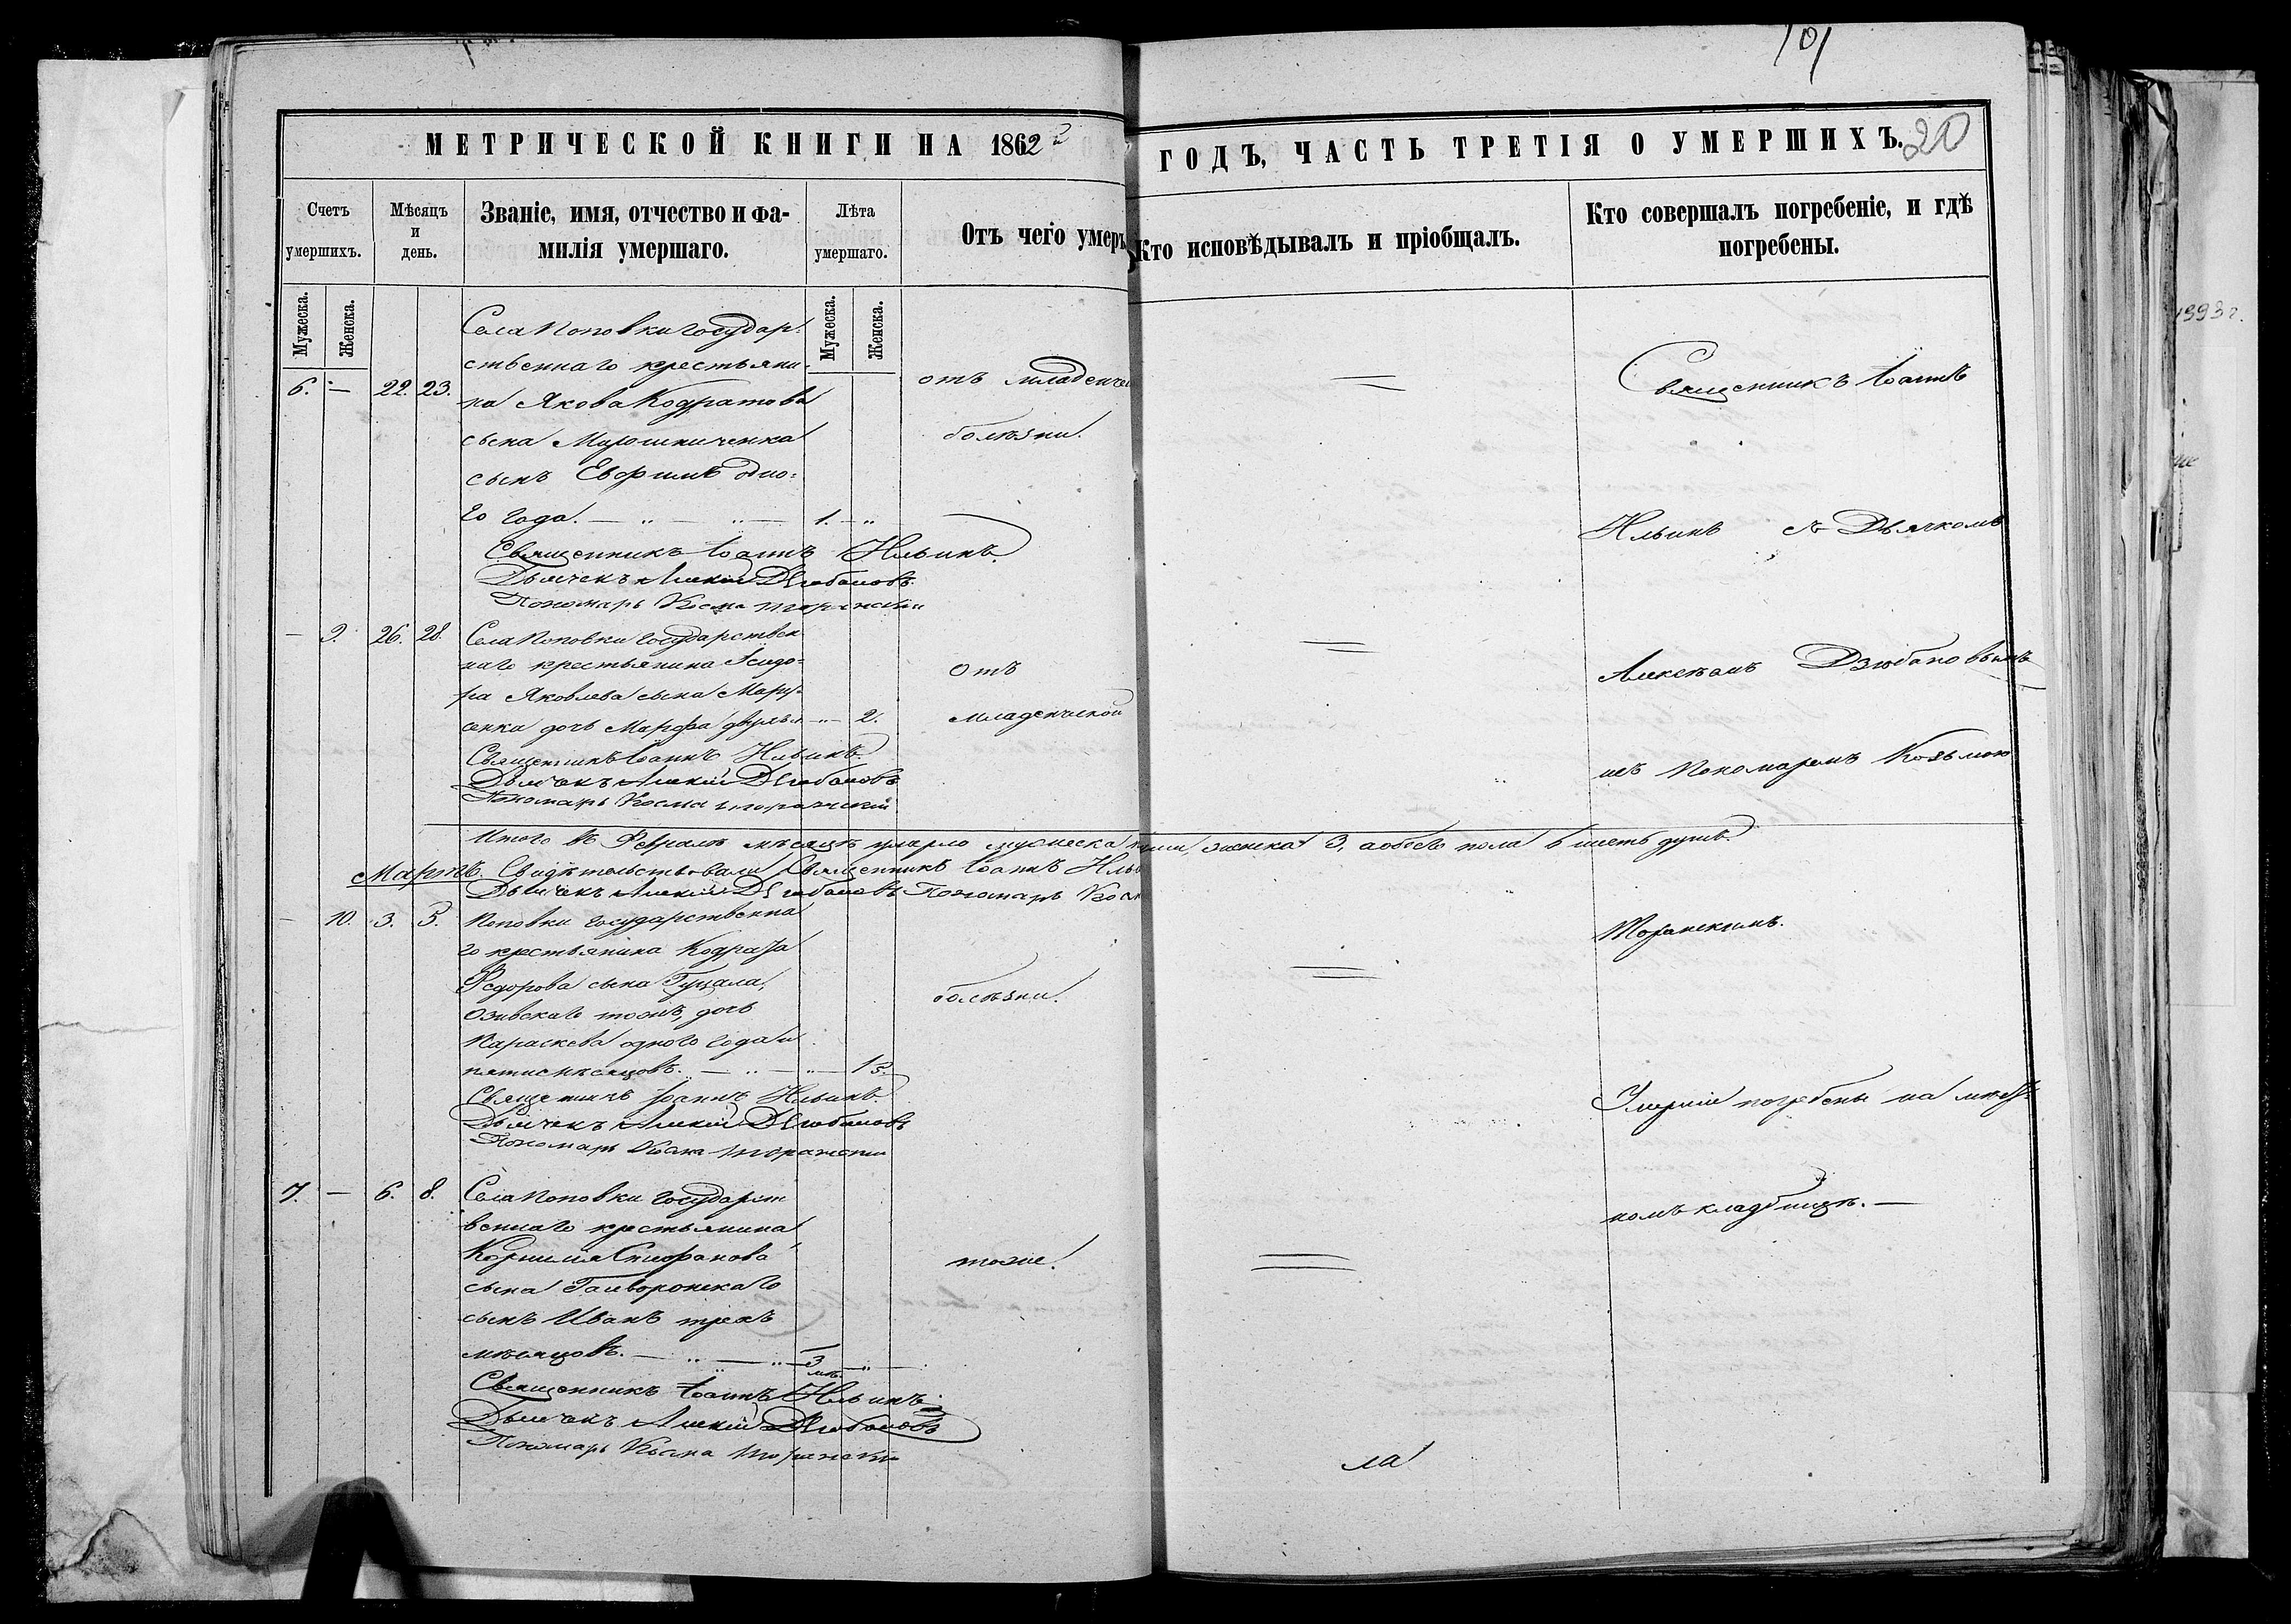 101
МЕТРИЧЕСКОЙ КНИГИ НА 1862
ГОДЪ, ЧАСТЬ ТРЕТІЯ О УМЕРШИХЪ. 20
Счетъ умершихъ.
Мѣсяцъ и день.
Званіе, имя, отчество и фа-
милія умершаго.
Лѣта умершаго.
Отъ чего умеръ
Кто исповѣдывалъ и пріобщалъ.
Кто совершалъ погребеніе, и гдѣ
погребены.
Мужеска. Женска.
Мужеска. Женска.
Села Поповки государ-
ственнаго крестьяни-
6. — 22. 23. на Якова Кодратова
сына Мирошниченка
сынъ Евфимъ одно-
го года. — „ — „ — 1. — „
отъ младенче
болѣзни.
Священникъ Іоаннъ Ильинъ
Дьячекъ Алексій Дзюбановъ
Пономарь Косма
— 9. 26. 28. Села Поповки государствен
наго крестьянина Исидо-
ра Яковлева сына
сенка дочь Марфа двухъ л. — „ — 2.
Отъ
младенческой
Священникъ Іоаннъ Ильинъ
Дьячекъ Алексій Дзюбановъ
Пономарь Косма
Итого въ Февралѣ мѣсяцѣ умерло мужеска три, женска 3, а обоего пола 6 шесть душъ.
Мартъ. Свидѣтельствовали Священникъ Іоаннъ Ильи
Дьячекъ Алексій Дзюбановъ Пономарь Косм
— 10. 3. 5. Поповки государственна
го крестьянина Кодрата
Федорова сына Гуцала,
дочь
Параскева одного года и
пяти мѣсяцовъ. — „ — „ — 1 5.
болѣзни.
Священникъ Іоаннъ Ильинъ
Дьячекъ Алексій Дзюбановъ
Пономарь Косма
7. — 6. 8. Села Поповки государст
веннаго крестьянина
Корнилія Стефанова
сына Гайворонскаго
сынъ Иванъ трехъ
мѣсяцовъ. — „ — „ — 3 мѣ. — „ —
тоже.
Священникъ Іоаннъ Ильинъ
Дьячекъ Алексій Дзюбановъ
Пономарь Косма
Священникъ Іоаннъ
Ильинъ съ Дьячкомъ
Алексѣемъ Дзюбановымъ
и съ Пономаремъ Козьмою
Торанскимъ.
Умершіе погребены на мѣст
номъ кладбищѣ. —
ла
1993 г.